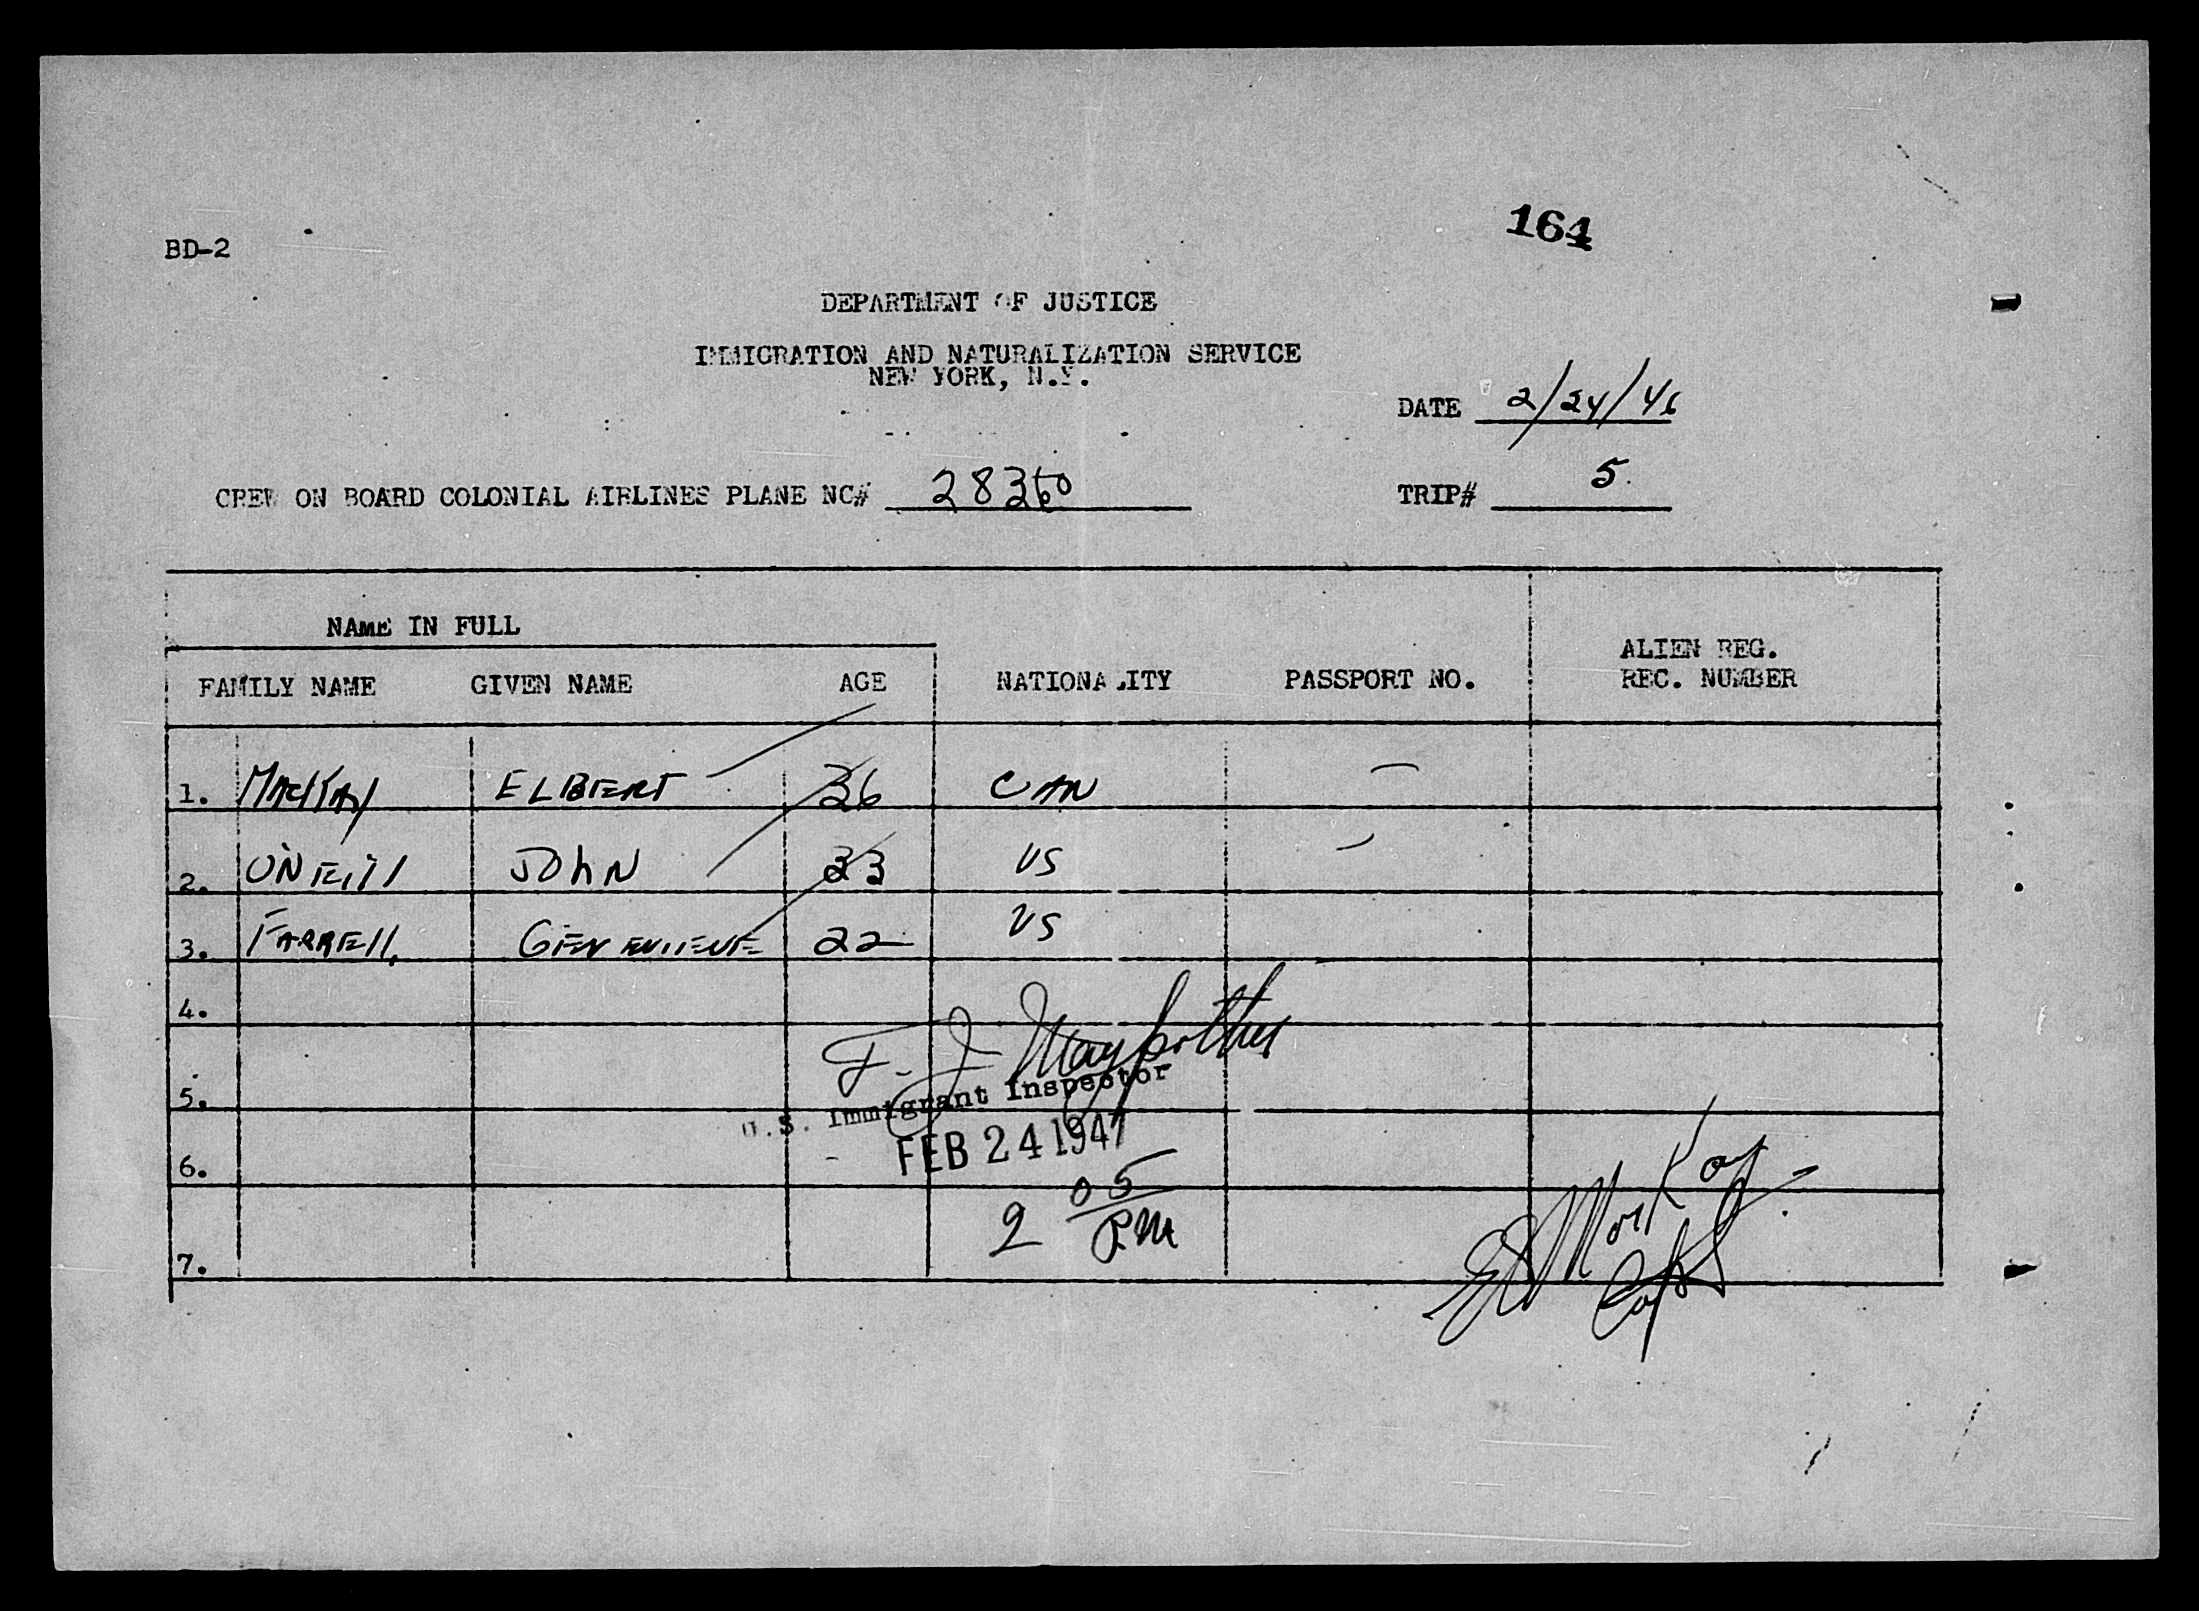 164
BD-2
DEPARTMENT OF JUSTICE
IMMIGRATION AND NATURALIZATION SERVICE
NEW YORK, N.Y.
DATE 2/24/46
CREW ON BOARD COLONIAL AIRLINES PLANE NC# 28360
TRIP# 5.
NAME IN FULL
FAMILY NAME GIVEN NAME AGE NATIONALITY PASSPORT NO. ALIEN REG. REC. NUMBER
1. MACKAY ELBERT 36 CAN —
2. O'NEILL JOHN 33 US —
3. FARRELL, GENEVIEVE 22 US
4.
F. J. Maypother
5.
U.S. Immigrant Inspector
FEB 24 1947
6.
2 05 P.M
E MacKay
Capt
7.